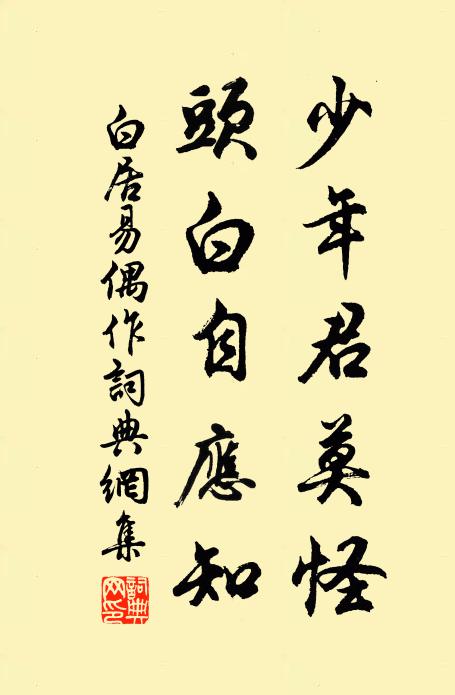 少年君莫怪
頭白自應知
白居易偶作詞典網集
詞典網印